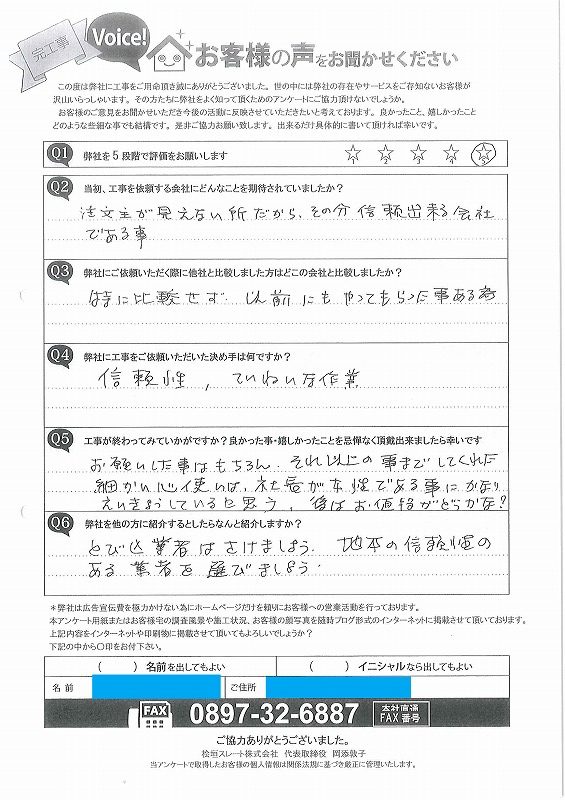 完工事
Voice!
お客様の声をお聞かせください
この度は弊社に工事をご用命頂き誠にありがとうございました。世の中には弊社の存在やサービスをご存知ないお客様が
沢山いらっしゃいます。その方たちに弊社をよく知って頂くためのアンケートにご協力頂けないでしょうか。
お客様のご意見をお聞かせいただき今後の活動に反映させていただきたいと考えております。良かったこと、嬉しかったこと
どのような些細な事でも結構です。是非ご協力お願い致します。出来るだけ具体的に書いて頂ければ幸いです。
Q1 弊社を5段階で評価をお願いします 1 2 3 4 5
Q2 当初、工事を依頼する会社にどんなことを期待されていましたか?
注文主が見えない所だから、その分信頼出来る会社
である事
Q3 弊社にご依頼いただく際に他社と比較しました方はどこの会社と比較しましたか?
特に比較せず、以前にもやってもらった事ある為
Q4 弊社に工事をご依頼いただいた決め手は何ですか?
信頼性，ていねいな作業
Q5 工事が終わってみていかがですか?良かった事・嬉しかったことを忌憚なく頂戴出来ましたら幸いです
お願いした事はもちろん、それ以上の事までしてくれた
細かい心使いは、社長が女性である事にかなり
えいきょうしていると思う、後はお値段がどうかな?
Q6 弊社を他の方に紹介するとしたらなんと紹介しますか?
とび込業者はさけましょう、地本の信頼性の
ある業者を選びましょう.
*弊社は広告宣伝費を極力かけない為にホームページだけを頼りにお客様への営業活動を行っております。
本アンケート用紙またはお客様宅の調査風景や施工状況、お客様の顔写真を随時ブログ形式のインターネットに掲載させて頂いております。
上記内容をインターネットや印刷物に掲載させて頂いてもよろしいでしょうか?
下記の中から○印をお付下さい。
( ) 名前を出してもよい ( ) イニシャルなら出してもよい
名前 ご住所
FAX 0897-32-6887 本社直通 FAX番号
ご協力ありがとうございました。
桧垣スレート株式会社 代表取締役 岡添敦子
当アンケートで取得したお客様の個人情報は関係法規に基づき厳正に管理いたします。